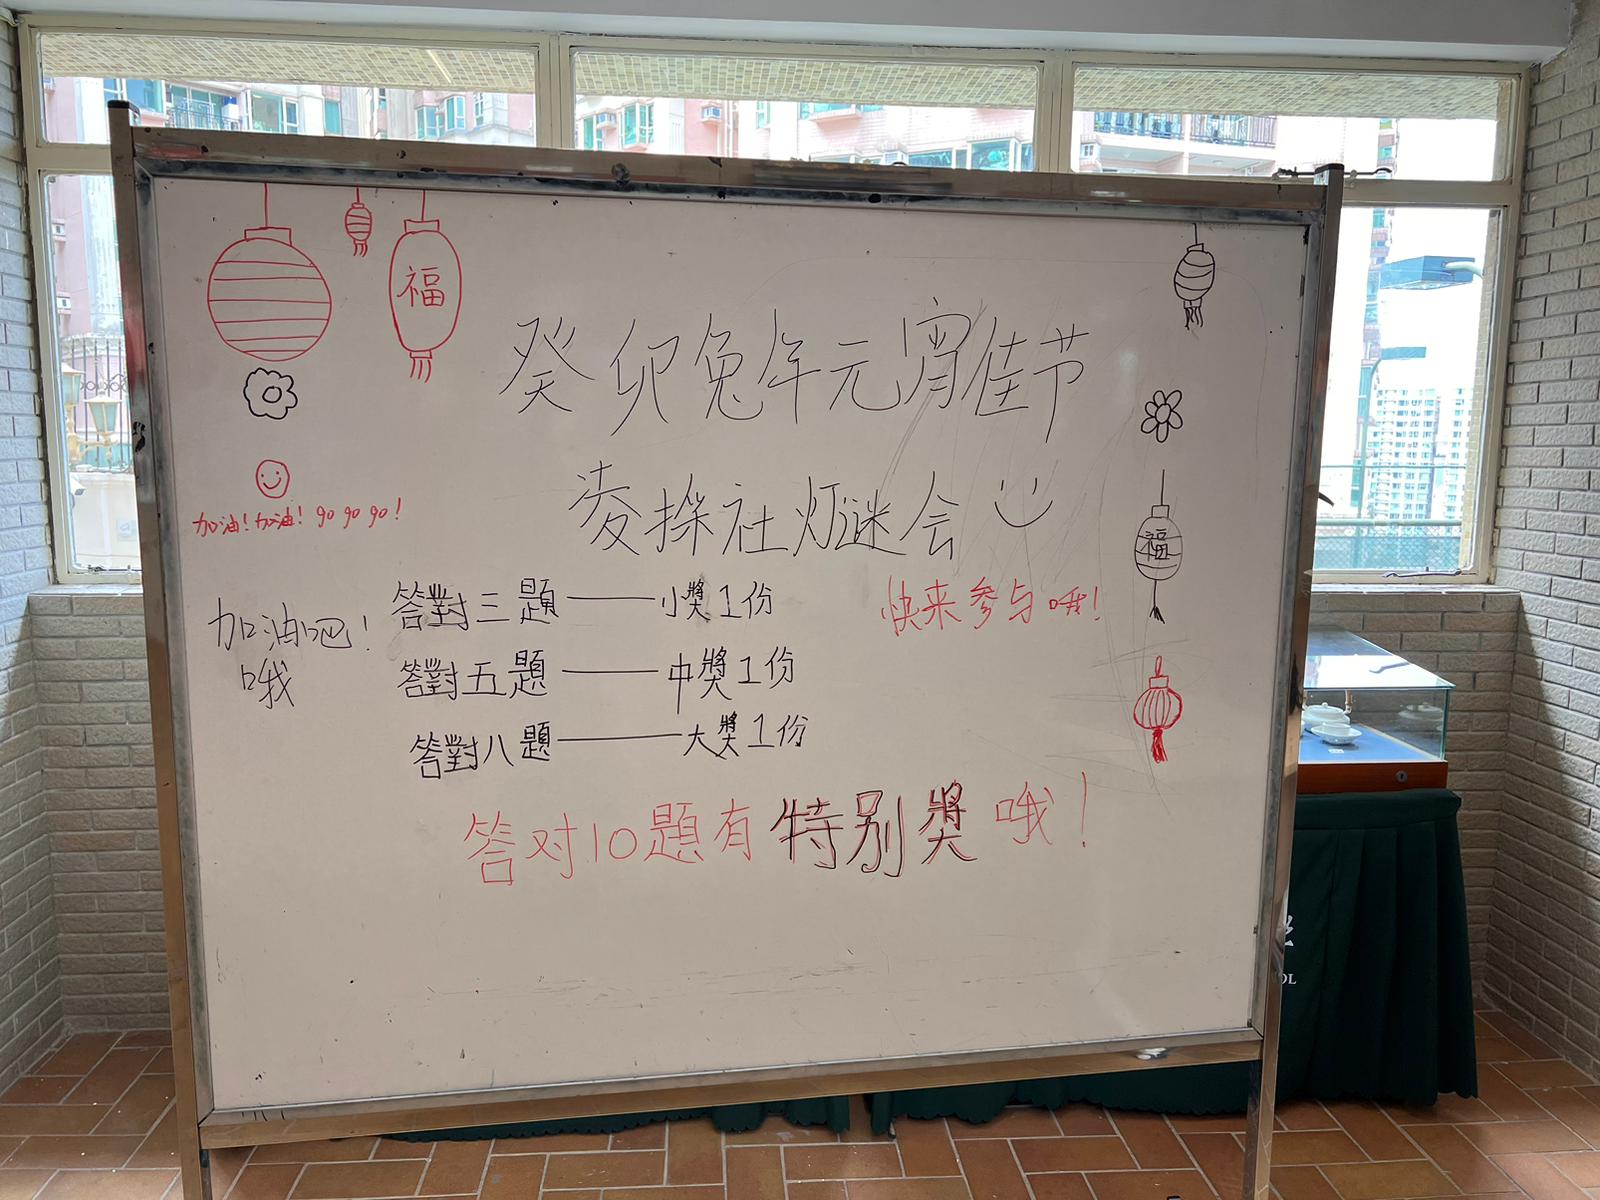 福
癸卯兔年元宵佳节
凌探社灯谜会
福
加油！加油！go go go！
答對三題——小獎1份
快来参与哦！
加油吧！
哦
答對五題——中獎1份
答對八題——大獎1份
答对10題有特别獎哦！
OL